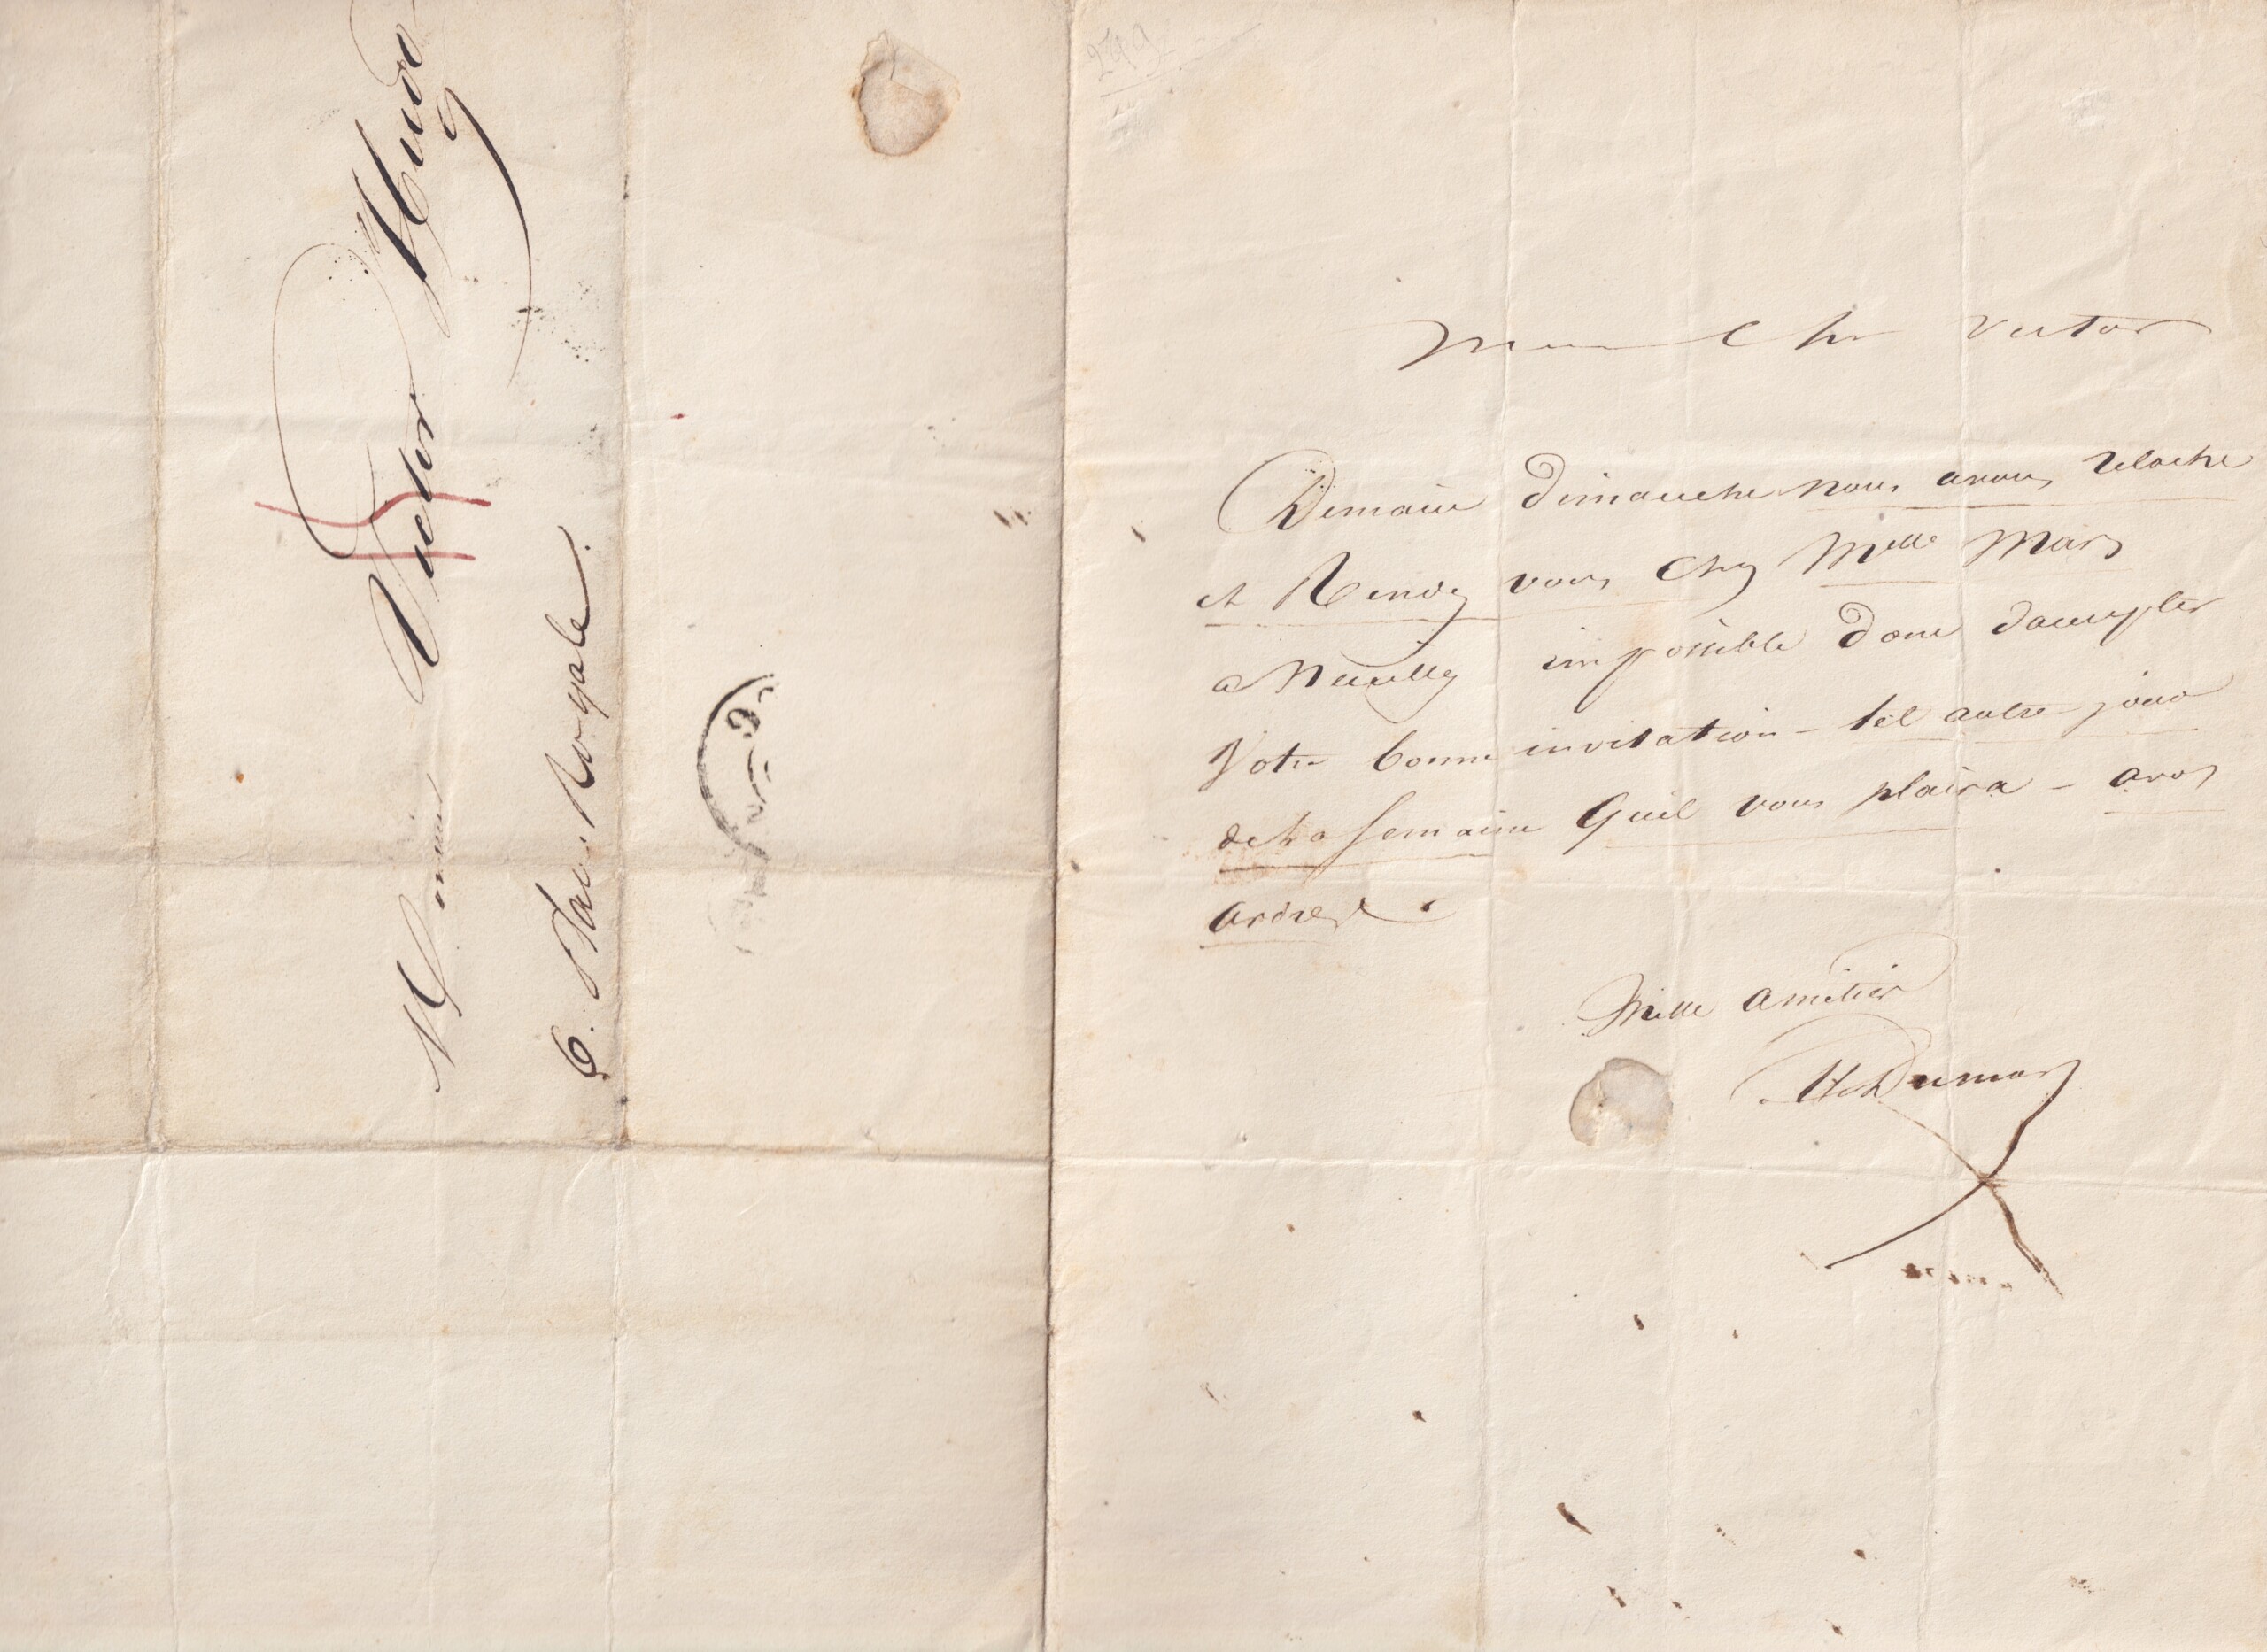 Monsieur Victor Hugo
6. Place Royale.
299
Mon cher Victor
Demain dimanche nous avons relache
et Rendez vous chez Melle Mars
a Neuilly impossible donc daccepter
Votre bonne invitation - tel autre jour
de la Semaine quil vous plaira - a vos
ordres.
Mille amitiés
Al Dumas